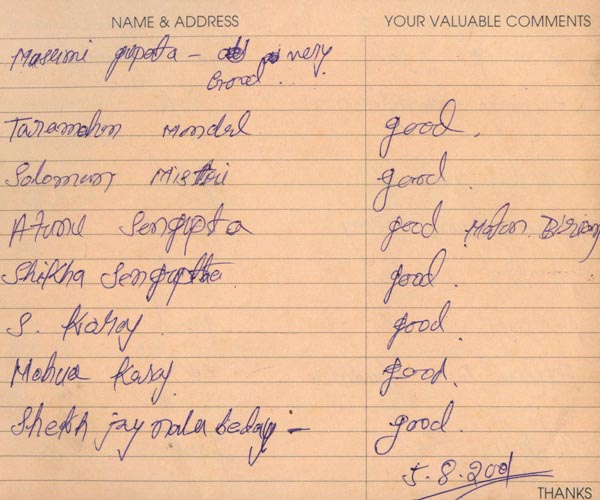 NAME & ADDRESS YOUR VALUABLE COMMENTS
Masumi gupta - very
Good.
Taramohan Mondal good.
Solomum Mistri good
Atunu Sengupta good Moton Biriany
Shikha Sengupta good.
S. Karay good.
Mahua Karay good.
Shekh jaynalabedaj - good.
5.8.2001
THANKS